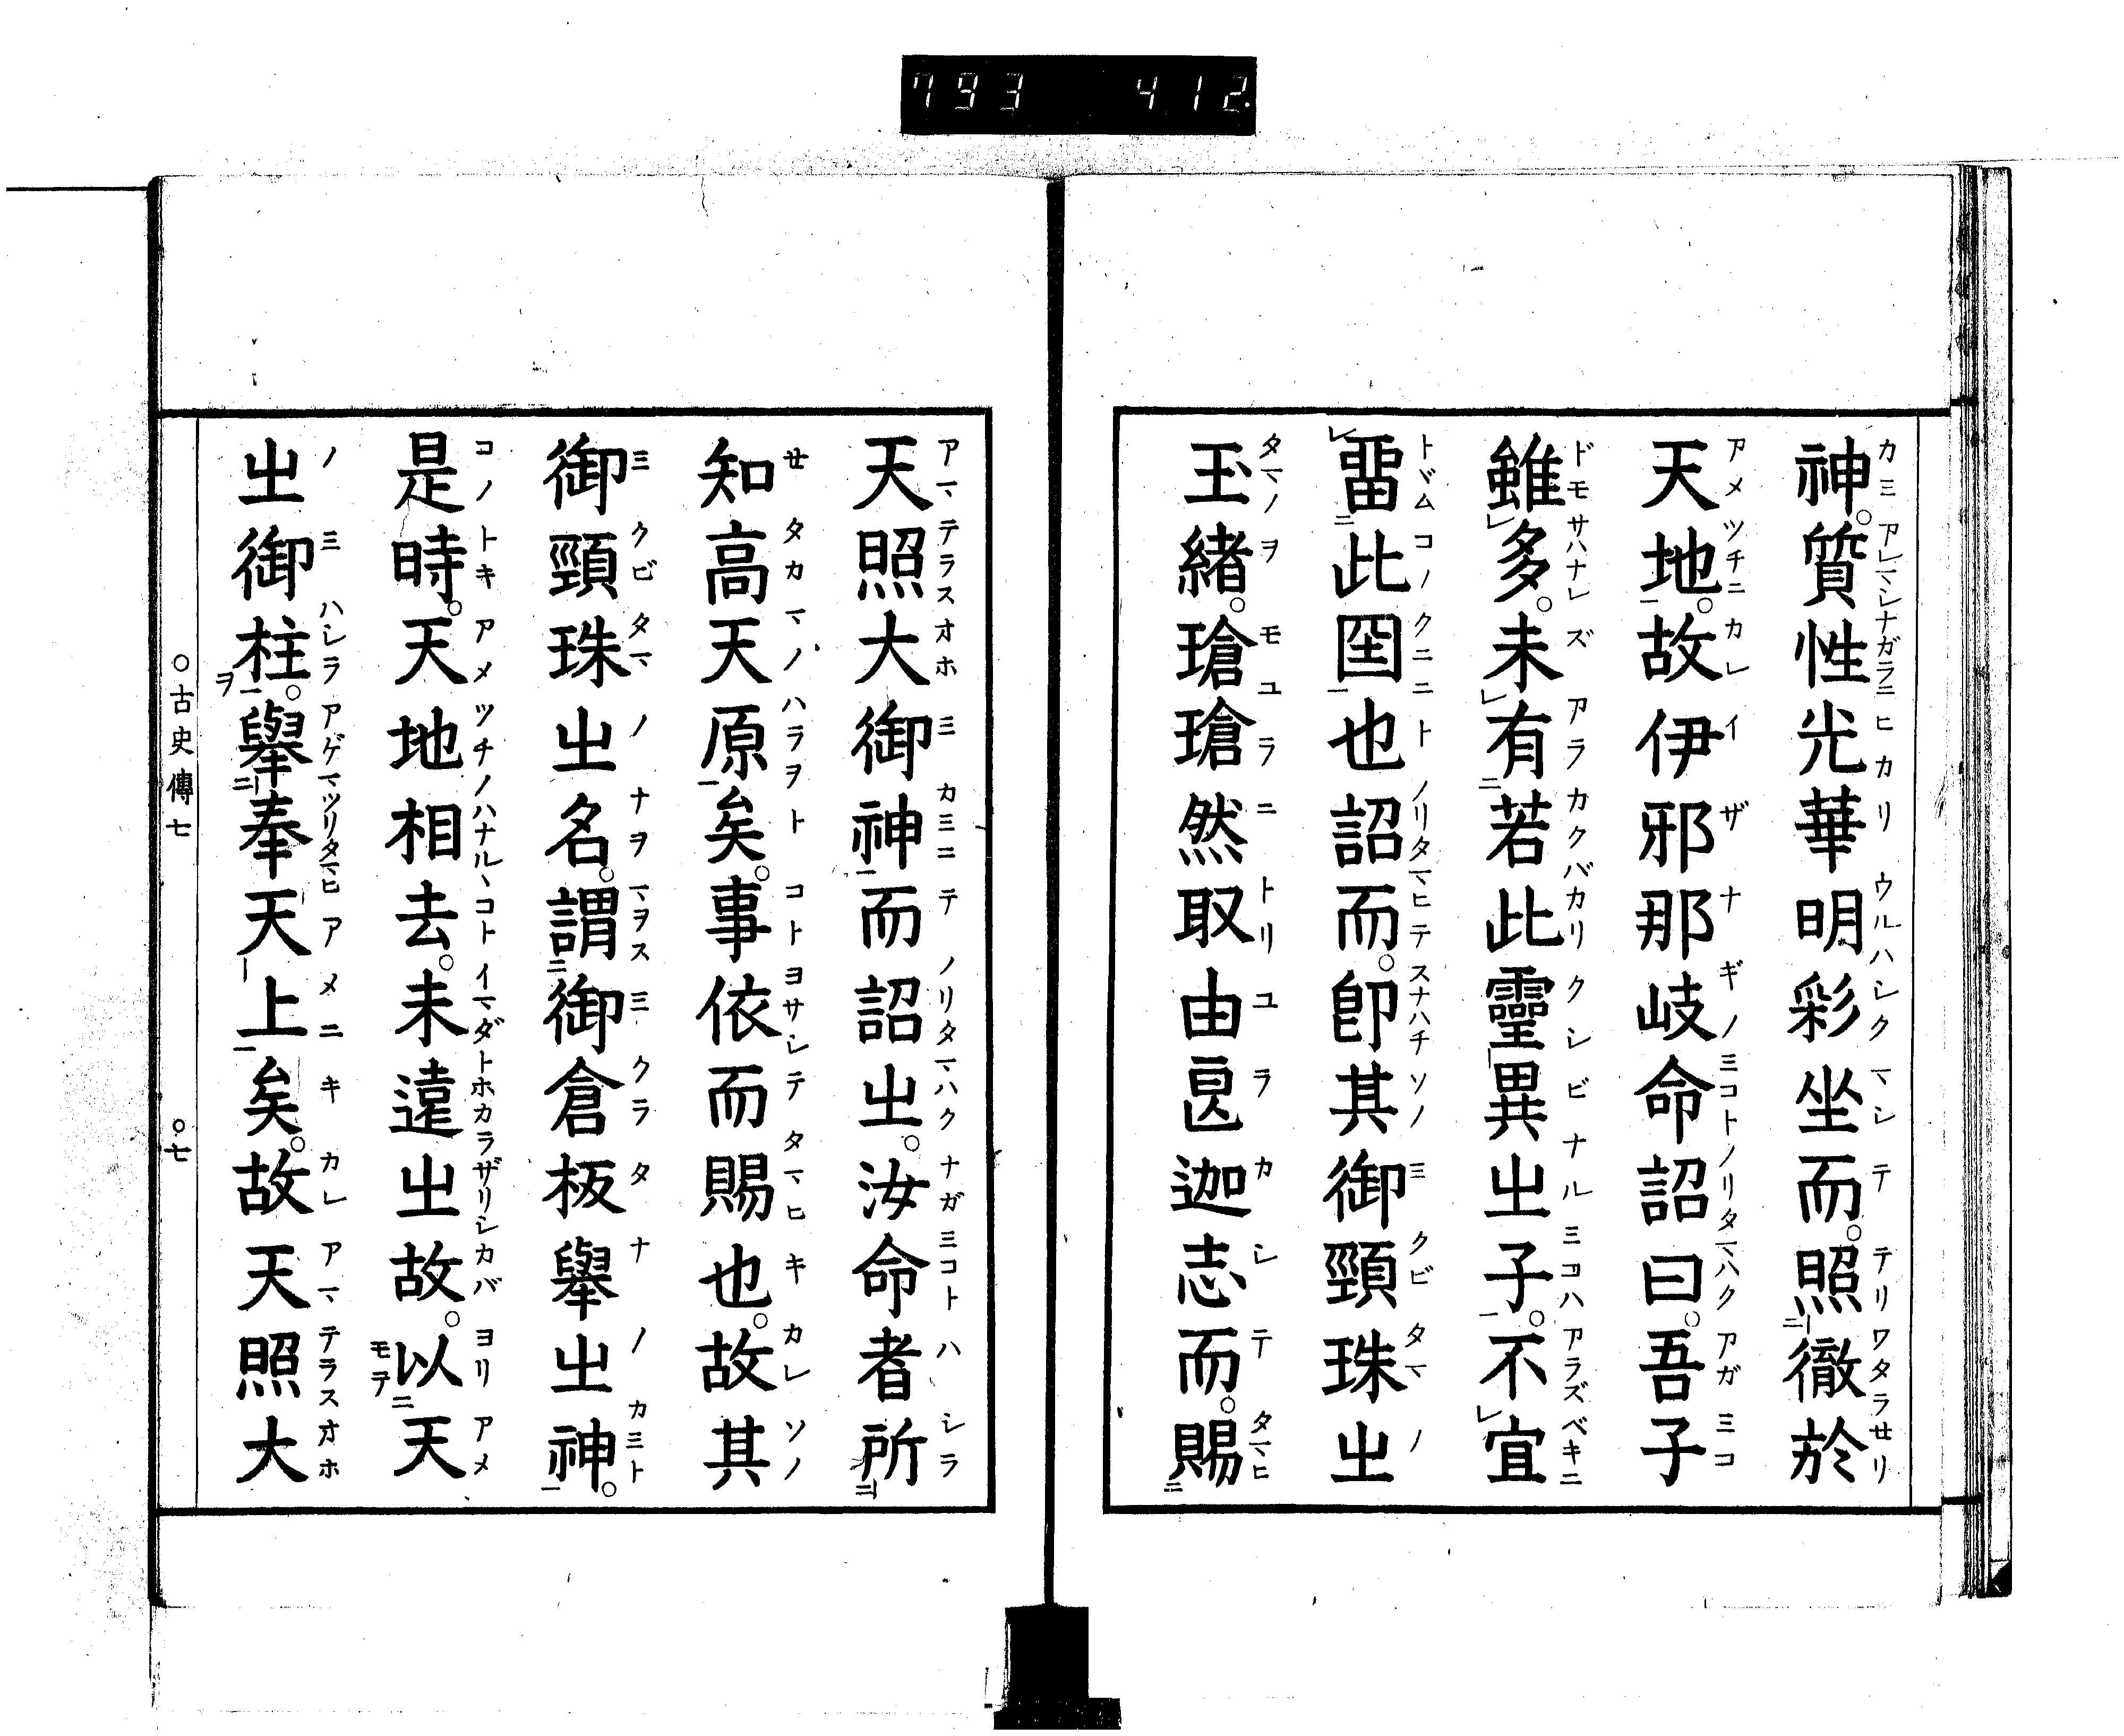 793 412
神。質性光華明彩坐而。照徹於
天地。故伊邪那岐命詔曰。吾子
雖多。未有若此靈異㞢子。不宜
畱此囶也詔而。卽其御頸珠㞢
玉緖。瑲瑲然取由良迦志而。賜
天照大御神而詔㞢。汝命者所
知高天原矣。事依而賜也。故其
御頸珠㞢名。謂御倉板擧㞢神。
是時。天地相去。未遠㞢故。以天
㞢御柱。擧奉天上矣。故天照大
○古史傳七 ○七